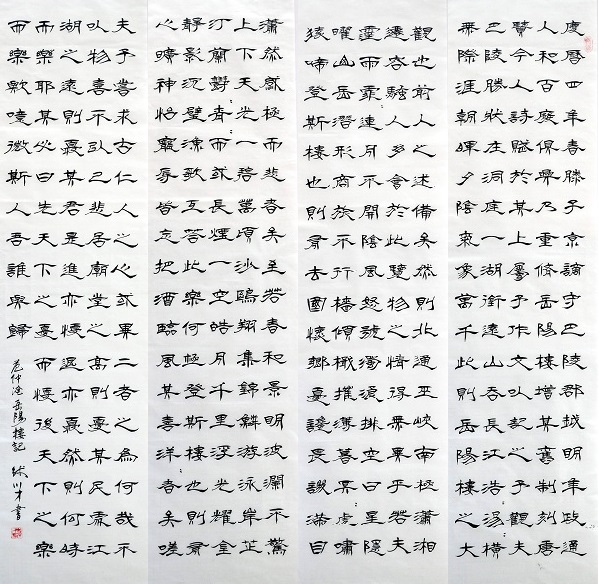 慶曆四年春滕子京謫守巴陵郡越明年政通
人和百廢具興乃重修岳陽樓增其舊制刻唐
賢今人詩賦於其上屬予作文以記之予觀夫
巴陵勝狀在洞庭一湖銜遠山吞長江浩〻湯〻橫
無際涯朝暉夕陰氣象萬千此則岳陽樓之大
觀也前人之述備矣然則北通巫峽南極瀟湘
遷客騷人多會於此覽物之情得無異乎若夫
霪雨霏〻連月不開陰風怒號濁浪排空日星隱
曜山岳潛形商旅不行檣傾楫摧薄暮冥〻虎嘯
猿啼登斯樓也則有去國懷鄉憂讒畏譏滿目
瀟然感極而悲者矣至若春和景明波瀾不驚
上下天光一碧萬頃沙鷗翔集錦鱗游泳岸芷
汀蘭鬱〻青〻而或長煙一空皓月千里浮光耀金
靜影沉璧漁歌互答此樂何極登斯樓也則有
心曠神怡寵辱皆忘把酒臨風其喜洋〻者矣嗟
夫予嘗求古仁人之心或異二者之為何哉不
以物喜不以己悲居廟堂之高則憂其民處江
湖之遠則憂其君是進亦憂退亦憂然則何時
而樂耶其必曰先天下之憂而憂後天下之樂
而樂歟噫微斯人吾誰與歸
范仲淹岳陽樓記 書